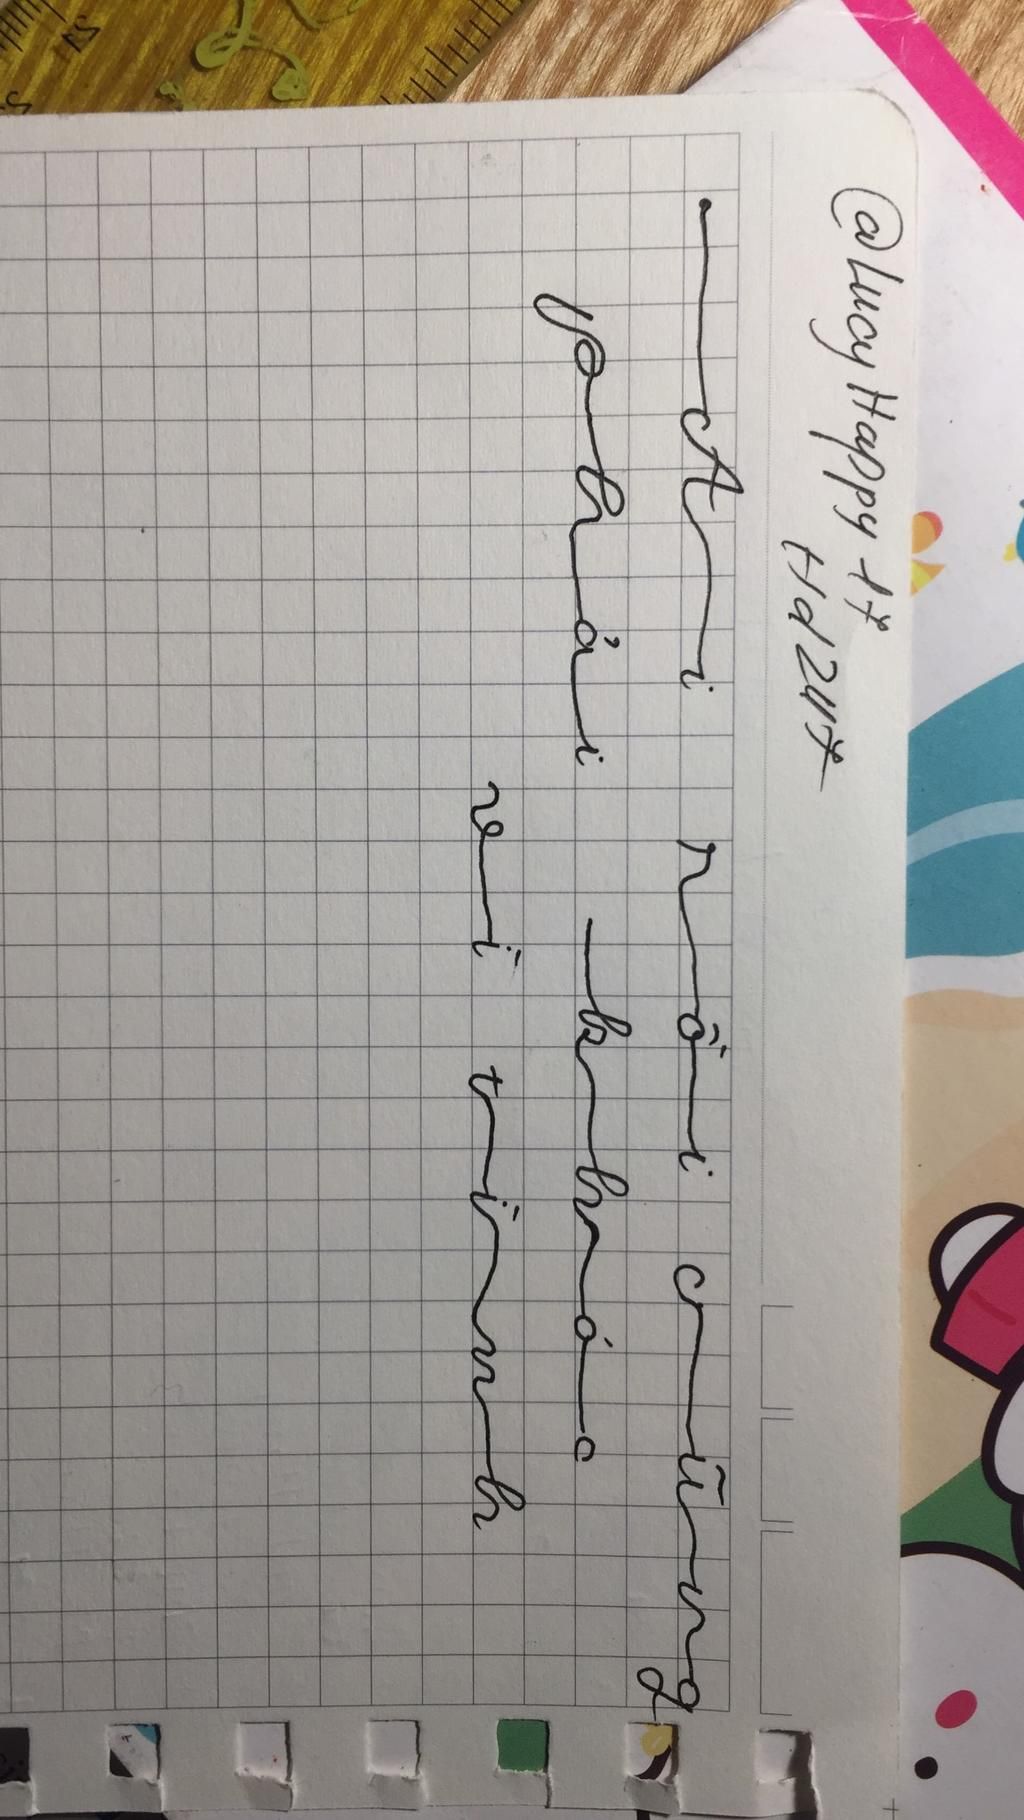 @LucyHappy17
Hd247
Ai rồi cũng
phải khác
vì tình